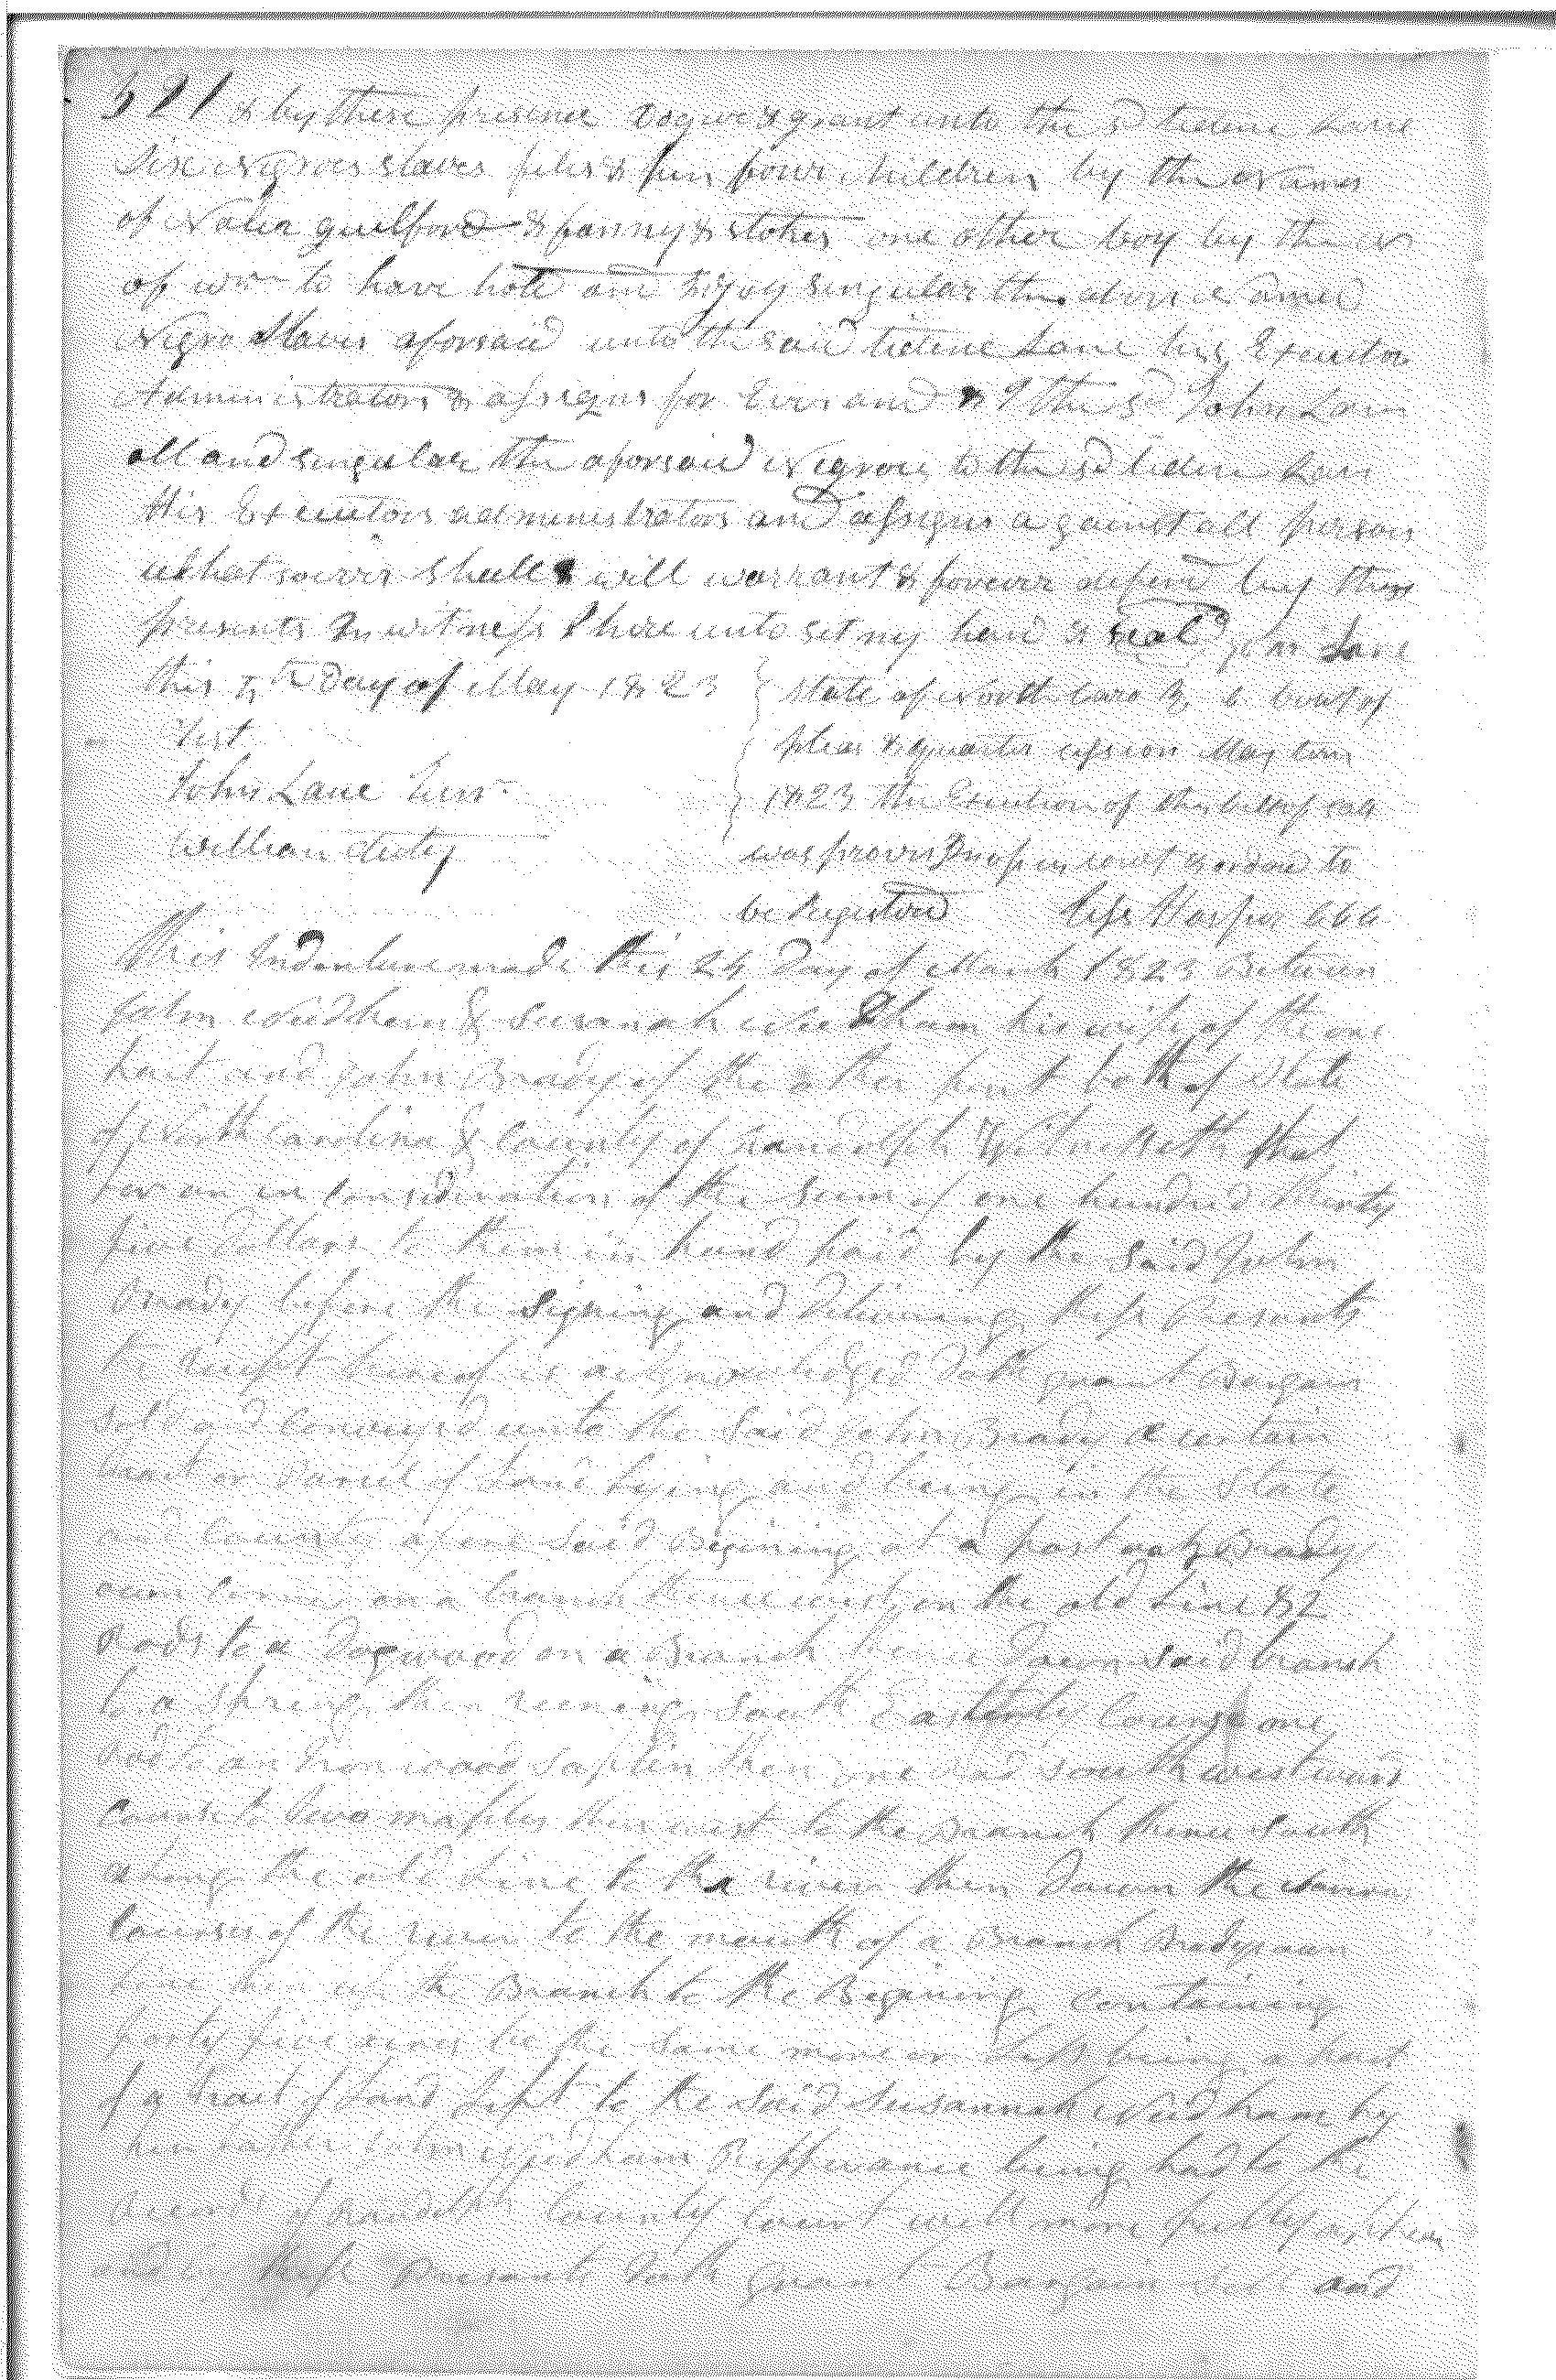 521 & by these presence do give & grant unto the sd tidene Lane
Six Negroes slaves & four children by the names
of guilford & fanny & stokes one other boy by the
of wm to have hold and Enjoy singular the above named
Negro Slaves aforsaid unto the said tidene Lane his Executors
Administrators & assigns for Ever and I the sd John Lane
all and singular the aforsaid Negroes to the sd tidene Lane
His Executors administrators and assigns against all persons
whatsoever shall & will warrant & forever defend by these
presents In witness I here unto set my hand & seal John Lane
this Day of May 1823
Test
John Lane
William
State of North Caro Court of
pleas & quarter session May term
1823 the Execution of this bill of sale
was proven In open court & ordered to
be Registered Jesse Harper CCC
This Indenture made this 24 Day of March 1823 Between
John Needham & Susannah Needham his wife of the one
part and John Brady of the other part both of State
of North Carolina & County of Randolph Witnesseth that
for an in Consideration of the Sum of one hundred thirty
five Dollars to them in hand paid by the said John
Brady before the signing and Delivering these Presents
the receipt hereof is acknowledged Doth grant Bargain
sell and Conveyed unto the said John Brady a certain
tract or Parcel of Land Lying and being in the State
and County afore said Begining at a post oak Brady
own corner on a branch thence west on the old Line 82
Rods to a Dogwood on a Branch thence Down said branch
to a Spring then runing South Easterly Course one
Rod to an Iron wood Saplin then one Rod south westward
Course to two maples then west to the Branch thence South
along the old Line to the river then Down the
Courses of the river to the mouth of a Branch Bradys own
line then up the Branch to the Begining containing
forty five acres be the same more or less being a part
of a tract of Land Left to the said Susannah Needham by
her John Needham Refferance being had to the
Records of Randolph County Court will more fully appear
and by these Presents Doth grant Bargain Sell and